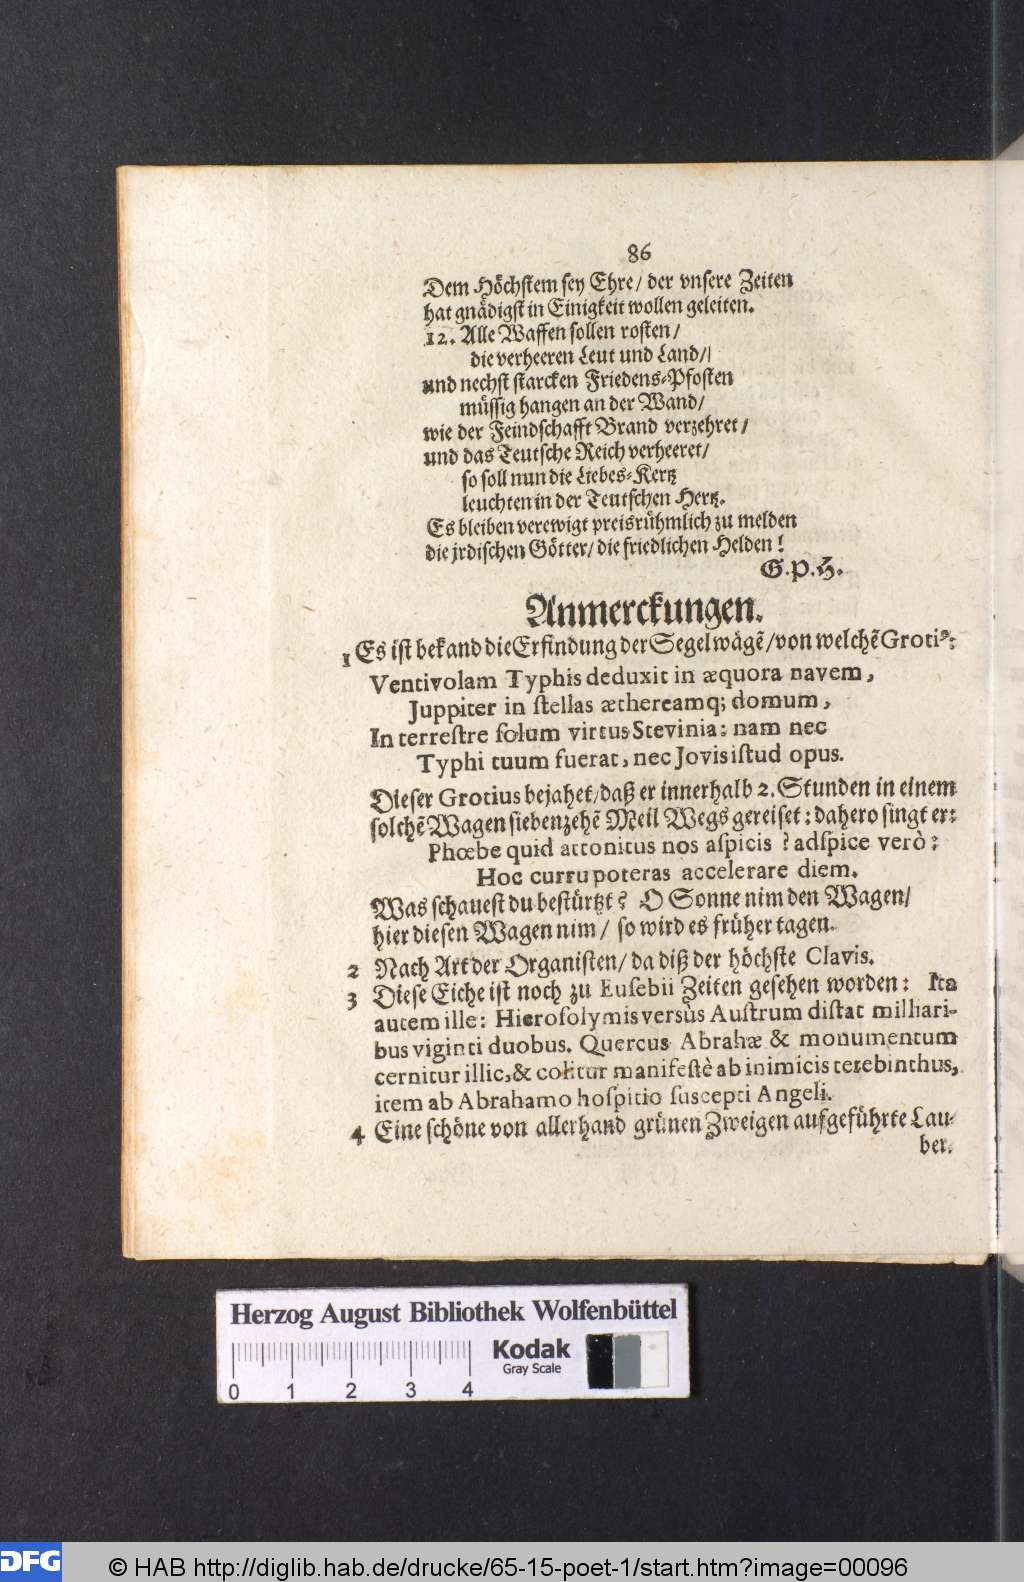 86
Dem Höchstem sey Ehre/ der vnsere Zeiten
hat gnädigst in Einigkeit wollen geleiten.
12. Alle Waffen sollen rosten/
die verheeren Leut und Land/
und nechst starcken Friedens-Pfosten
müssig hangen an der Wand/
wie der Feindschafft Brand verzehret/
und das Teutsche Reich verheeret/
so soll nun die Liebes-Kertz
leuchten in der Teutschen Hertz.
Es bleiben verewigt preisrühmlich zu melden
die jrdischen Götter/ die friedlichen Helden!
G.P.H.
Anmerckungen.
1 Es ist bekand die Erfindung der Segelwägẽ/von welchẽ Grotiꝰ:
Ventivolam Typhis deduxit in æquora navem,
Juppiter in ſtellas æthereamq; domum,
In terreſtre ſolum virtus Stevinia: nam nec
Typhi tuum fuerat, nec Jovis iſtud opus.
Dieser Grotius bejahet/daß er innerhalb 2. Stunden in einem
solchẽ Wagen siebenzehẽ Meil Wegs gereiset: dahero singt er:
Phœbe quid attonitus nos aſpicis? adſpice verò:
Hoc curru poteras accelerare diem.
Was schauest du bestürtzt? O Sonne nim den Wagen/
hier diesen Wagen nim/ so wird es früher tagen.
2 Nach Art der Organisten/ da diß der höchste Clavis.
3 Diese Eiche ist noch zu Euſebii Zeiten gesehen worden: Ita
autem ille: Hieroſolymis versùs Auſtrum diſtat milliari-
bus viginti duobus. Quercus Abrahæ & monumentum
cernitur illic, & colitur manifeſtè ab inimicis terebinthus,
item ab Abrahamo hoſpitio ſuscepti Angeli.
4 Eine schöne von allerhand grünen Zweigen aufgeführte Lau-
ber.
Herzog August Bibliothek Wolfenbüttel
Kodak
Gray Scale
0 1 2 3 4
DFG
© HAB http://diglib.hab.de/drucke/65-15-poet-1/start.htm?image=00096